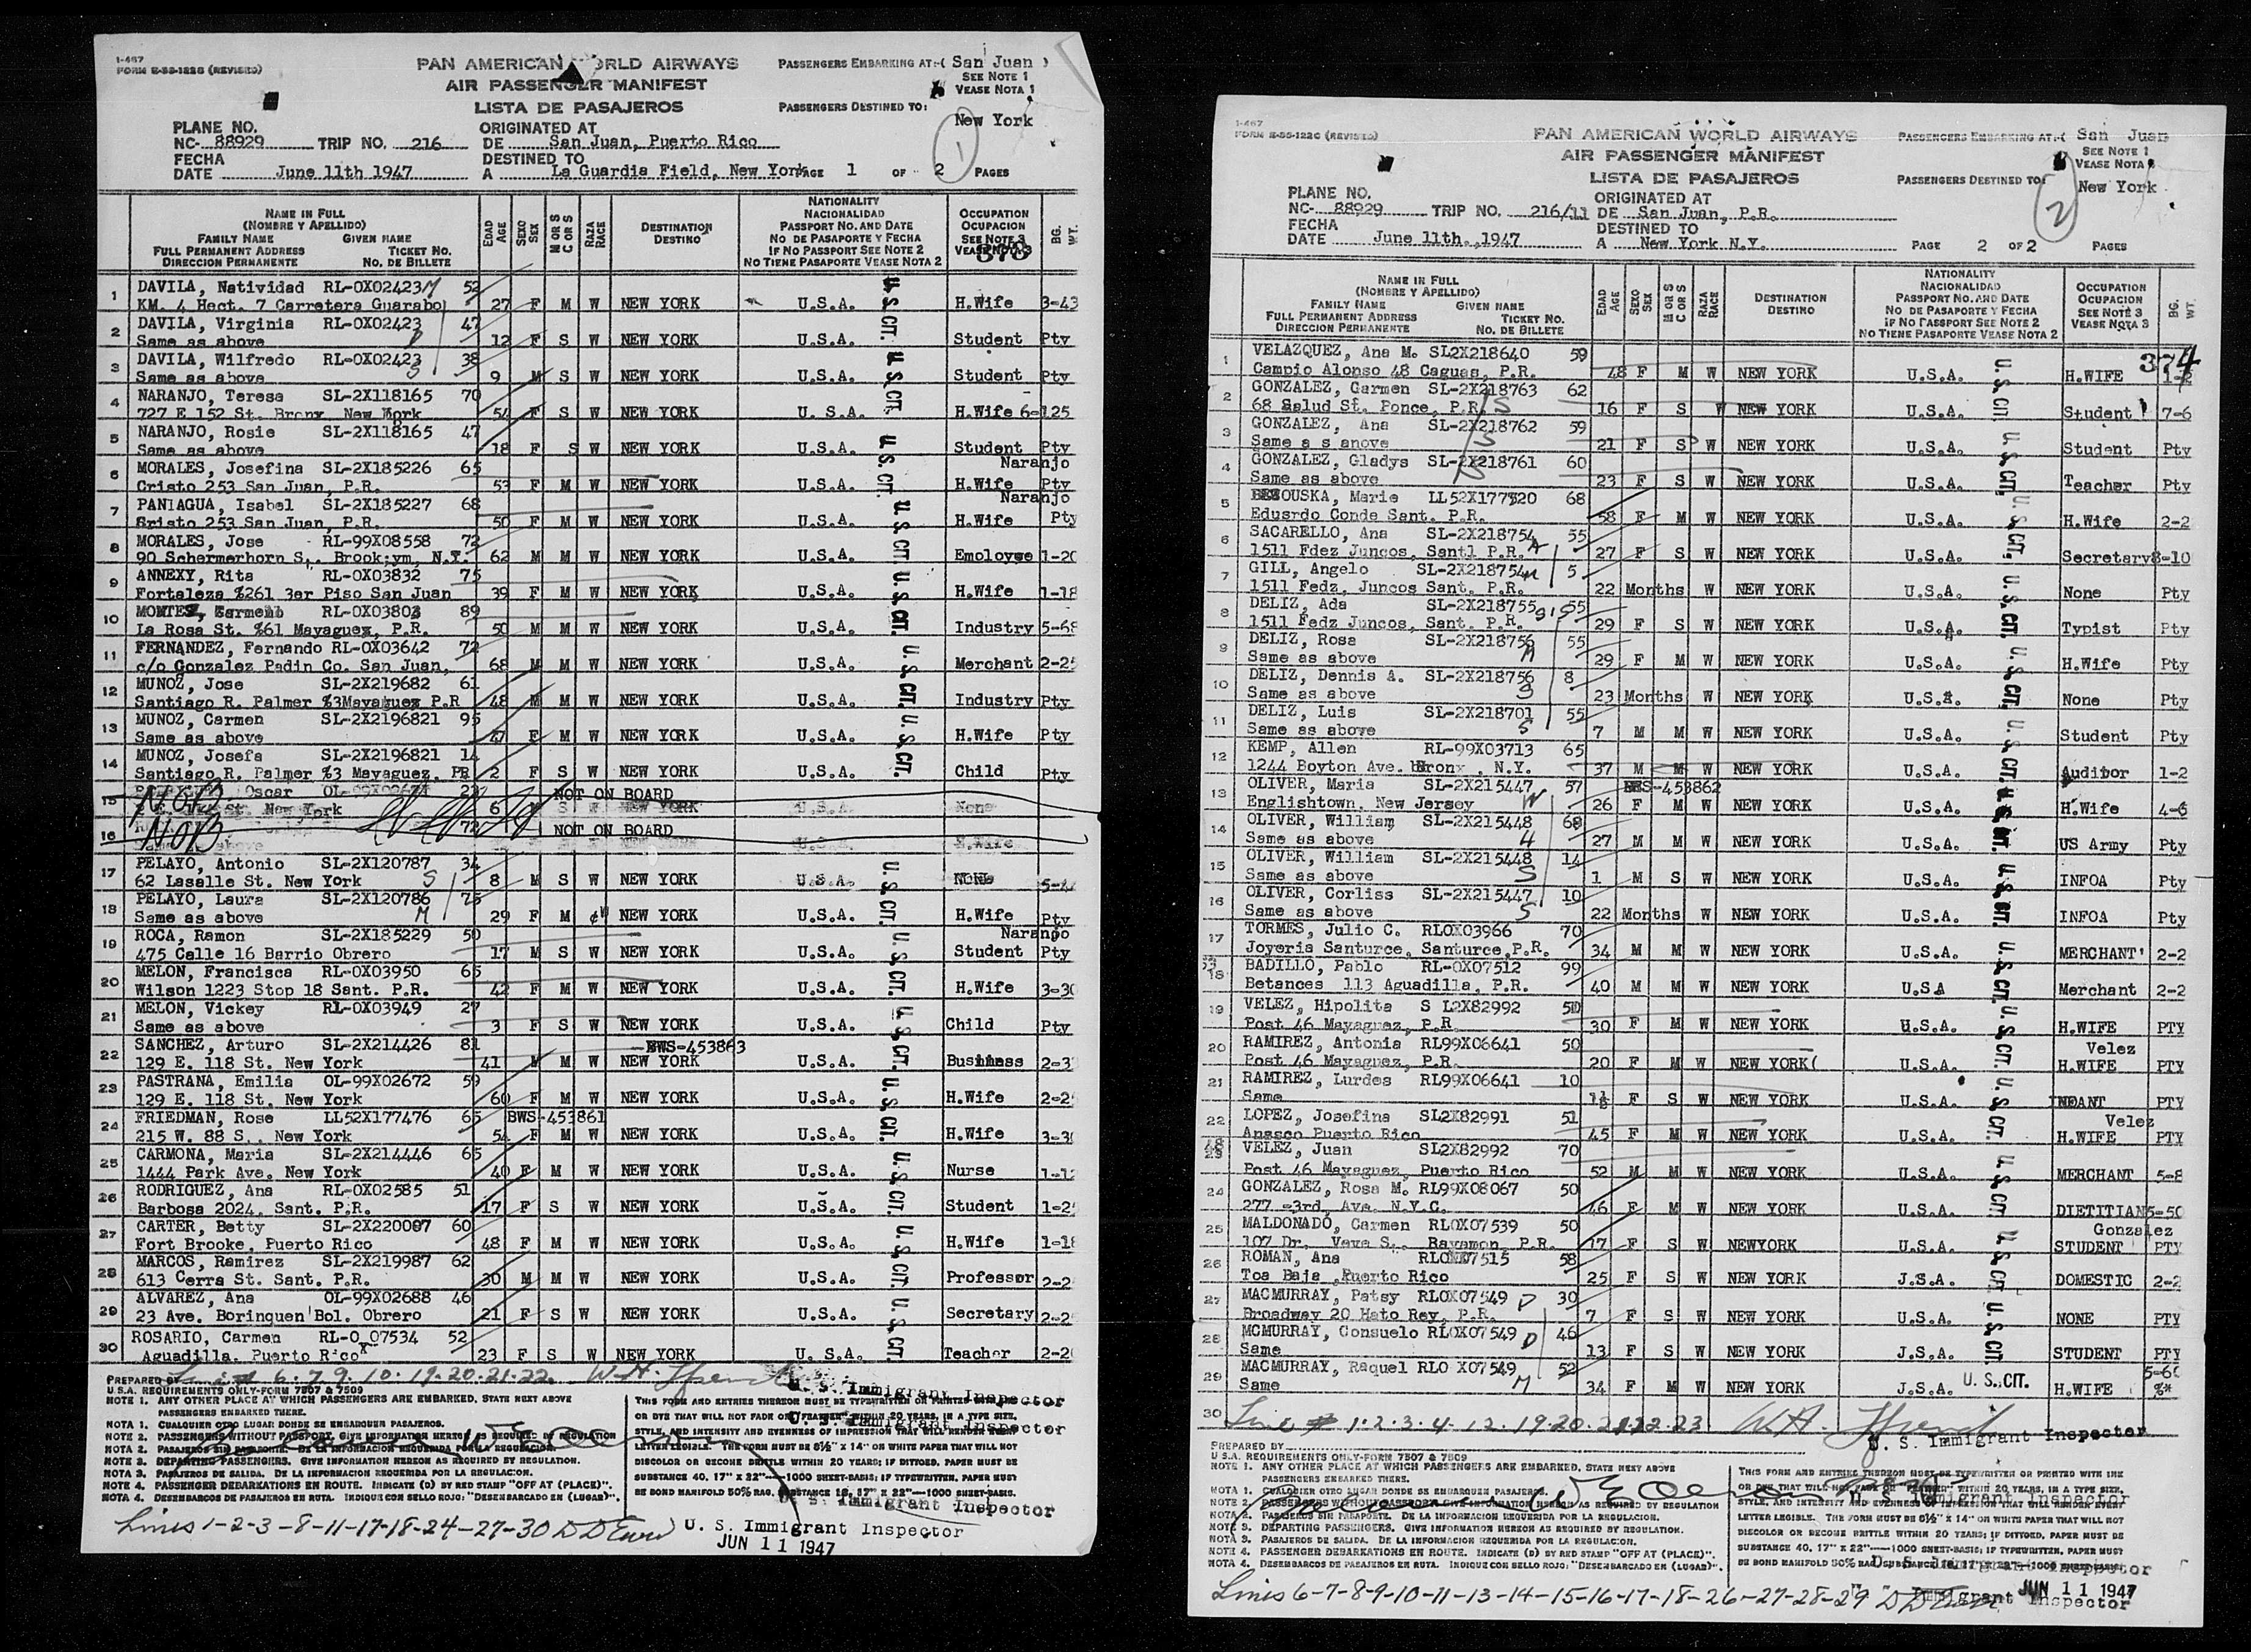 I-467
FORM E-SS-122C (REVISED)
PAN AMERICAN WORLD AIRWAYS
AIR PASSENGER MANIFEST
LISTA DE PASAJEROS
PASSENGERS EMBARKING AT:-( San Juan )
SEE NOTE 1
VEASE NOTA 1
PASSENGERS DESTINED TO:
New York
1
PLANE NO.
NC- 88929 TRIP NO. 216
ORIGINATED AT
DE San Juan, Puerto Rico
FECHA
DATE June 11th 1947
DESTINED TO
A La Guardia Field, New York
PAGE 1 OF 2 PAGES
NAME IN FULL
(NOMBRE Y APELLIDO)
FAMILY NAME GIVEN NAME
FULL PERMANENT ADDRESS TICKET NO.
DIRECCION PERMANENTE NO. DE BILLETE
EDAD AGE
SEXO SEX
M OR S C OR S
RAZA RACE
DESTINATION
DESTINO
NATIONALITY
NACIONALIDAD
PASSPORT NO. AND DATE
NO DE PASAPORTE Y FECHA
IF NO PASSPORT SEE NOTE 2
NO TIENE PASAPORTE VEASE NOTA 2
OCCUPATION
OCUPACION
SEE NOTE 3
VEASE NOTA 3
373
BG. WT.
1 DAVILA, Natividad RL-OX02423 M 52
KM. 4 Hect. 7 Carretera Guarabo 27 F M W NEW YORK U.S.A. H.Wife 3-43
2 DAVILA, Virginia RL-OX02423 47
Same as above D 12 F S W NEW YORK U.S.A. Student Pty
3 DAVILA, Wilfredo RL-OX02423 38
Same as above S 9 M S W NEW YORK U.S.A. Student Pty
4 NARANJO, Teresa SL-2X118165 70
727 E 152 St. Bronx, New York 54 F S W NEW YORK U. S.A. H.Wife 6-125
5 NARANJO, Rosie SL-2X118165 47
Same as above 18 F S W NEW YORK U.S.A. Student Pty
6 MORALES, Josefina SL-2X185226 65 Naranjo
Cristo 253 San Juan, P.R. 53 F M W NEW YORK U.S.A. H.Wife Pty
7 PANIAGUA, Isabel SL-2X185227 68 Naranjo
Sristo 253 San Juan, P.R. 50 F M W NEW YORK U.S.A. H.Wife Pty
8 MORALES, Jose RL-99X08558 72
90 Schermerhorn S,. Brook;ym, N.Y. 62 M M W NEW YORK U.S.A. Employee 1-20
9 ANNEXY, Rita RL-OX03832 75
Fortaleza %261 3er Piso San Juan 39 F M W NEW YORK U.S.A. H.Wife 1-18
10 MONTES, RL-OX03803 89
La Rosa St. %61 Mayaguez, P.R. 50 M M W NEW YORK U.S.A. Industry 5-68
11 FERNANDEZ, Fernando RL-OX03642 72
c/o Gonzalez Padin Co. San Juan, 68 M M W NEW YORK U.S.A. Merchant 2-25
12 MUNOZ, Jose SL-2X219682 61
Santiago R. Palmer %3Mayaguez P.R 48 M M W NEW YORK U.S.A. Industry Pty
13 MUNOZ, Carmen SL-2X2196821 95
Same as above 47 F M W NEW YORK U.S.A. H.Wife Pty
14 MUNOZ, Josefa SL-2X2196821 14
Santiago R. Palmer %3 Mayaguez, PR 2 F S W NEW YORK U.S.A. Child Pty
15 NOB Oscar NOT ON BOARD
St. New York 6 S W NEW YORK U.S.A. None
16 NOB 72 NOT ON BOARD
U.S.A. H.Wife
17 PELAYO, Antonio SL-2X120787 34
62 Lasalle St. New York S 8 M S W NEW YORK U.S.A. None
18 PELAYO, Laura SL-2X120786 75
Same as above M 29 F M W NEW YORK U.S.A. H.Wife Pty
19 ROCA, Ramon SL-2X185229 50 Naranjo
475 Calle 16 Barrio Obrero 17 M S W NEW YORK U.S.A. Student Pty
20 MELON, Francisca RL-OX03950 65
Wilson 1223 Stop 18 Sant. P.R. 42 F M W NEW YORK U.S.A. H.Wife 3-30
21 MELON, Vickey RL-OX03949 27
Same as above 3 F S W NEW YORK U.S.A. Child Pty
22 SANCHEZ, Arturo SL-2X214426 81 BWS-453863
129 E. 118 St. New York 41 M M W NEW YORK U.S.A. Business 2-3
23 PASTRANA, Emilia OL-99X02672 59
129 E. 118 St. New York 60 F M W NEW YORK U.S.A. H.Wife 2-2
24 FRIEDMAN, Rose LL52X177476 65 BWS-453861
215 W. 88 S,. New York 54 F M W NEW YORK U.S.A. H.Wife 3-30
25 CARMONA, Maria SL-2X214446 65
1444 Park Ave. New York 40 F M W NEW YORK U.S.A. Nurse 1-12
26 RODRIGUEZ, Ana RL-OX02585 51
Barbosa 2024, Sant. P.R. 17 F S W NEW YORK U.S.A. Student 1-2
27 CARTER, Betty SL-2X220087 60
Fort Brooke, Puerto Rico 48 F M W NEW YORK U.S.A. H.Wife 1-18
28 MARCOS, Ramirez SL-2X219987 62
613 Cerra St. Sant. P.R. 30 M M W NEW YORK U.S.A. Professor 2-2
29 ALVAREZ, Ana OL-99X02688 46
23 Ave. Borinquen Bol. Obrero 21 F S W NEW YORK U.S.A. Secretary 2-2
30 ROSARIO, Carmen RL-O 07534 52
Aguadilla, Puerto Rico 23 F S W NEW YORK U. S.A. Teacher 2-2
U.S. CIT.
PREPARED BY Line # 6.7.9.10.19.20.21.22.
U. S. Immigrant Inspector
U.S.A. REQUIREMENTS ONLY-FORM 7507 & 7509
NOTE 1. ANY OTHER PLACE AT WHICH PASSENGERS ARE EMBARKED, STATE NEXT ABOVE
PASSENGERS EMBARKED THERE.
NOTA 1. CUALQUIER OTRO LUGAR DONDE SE EMBARQUEN PASAJEROS.
NOTE 2. PASSENGERS WITHOUT PASSPORT, GIVE INFORMATION HEREON AS REQUIRED BY REGULATION
NOTA 2. PASAJEROS SIN PASAPORTE. DE LA INFORMACION REQUERIDA POR LA REGULACION.
NOTE 3. DEPARTING PASSENGERS. GIVE INFORMATION HEREON AS REQUIRED BY REGULATION.
NOTA 3. PASAJEROS DE SALIDA. DE LA INFORMACION REQUERIDA POR LA REGULACION.
NOTE 4. PASSENGER DEBARKATIONS EN ROUTE. INDICATE (D) BY RED STAMP "OFF AT (PLACE)".
NOTA 4. DESEMBARCOS DE PASAJEROS EN RUTA. INDIQUE CON SELLO ROJO: "DESEMBARCADO EN (LUGAR)".
THIS FORM AND ENTRIES THEREON MUST BE TYPEWRITTEN OR PRINTED WITH INK
OR DYE THAT WILL NOT FADE OR "FEATHER" WITHIN 20 YEARS, IN A TYPE SIZE,
STYLE, AND INTENSITY AND EVENNESS OF IMPRESSION THAT WILL RENDER THEM
LETTER LEGIBLE. THE FORM MUST BE 8½" x 14" ON WHITE PAPER THAT WILL NOT
DISCOLOR OR BECOME BRITTLE WITHIN 20 YEARS; IF DITTOED, PAPER MUST BE
SUBSTANCE 40, 17" x 22"—1000 SHEET-BASIS; IF TYPEWRITTEN, PAPER MUST
BE BOND MANIFOLD 50% RAG, SUBSTANCE 18, 17" x 22"—1000 SHEET-BASIS.
U. S. Immigrant Inspector
Lines 1-2-3-8-11-17-18-24-27-30
U. S. Immigrant Inspector
JUN 11 1947
I-467
FORM E-SS-122C (REVISED)
PAN AMERICAN WORLD AIRWAYS
AIR PASSENGER MANIFEST
LISTA DE PASAJEROS
PASSENGERS EMBARKING AT:-( San Juan
SEE NOTE 1
VEASE NOTA
PASSENGERS DESTINED TO:
New York
2
PLANE NO.
NC- 88929 TRIP NO. 216/11
ORIGINATED AT
DE San Juan, P.R.
FECHA
DATE June 11th.,1947
DESTINED TO
A New York N.Y.
PAGE 2 OF 2 PAGES
NAME IN FULL
(NOMBRE Y APELLIDO)
FAMILY NAME GIVEN NAME
FULL PERMANENT ADDRESS TICKET NO.
DIRECCION PERMANENTE NO. DE BILLETE
EDAD AGE
SEXO SEX
M OR S C OR S
RAZA RACE
DESTINATION
DESTINO
NATIONALITY
NACIONALIDAD
PASSPORT NO. AND DATE
NO DE PASAPORTE Y FECHA
IF NO PASSPORT SEE NOTE 2
NO TIENE PASAPORTE VEASE NOTA 2
OCCUPATION
OCUPACION
SEE NOTE 3
VEASE NOTA 3
BG. WT.
374
1 VELAZQUEZ, Ana M. SL2X218640 59
Campio Alonso 48 Caguas, P.R. 48 F M W NEW YORK U.S.A. H.WIFE 1-2
2 GONZALEZ, Garmen SL-2X218763 62
68 Salud St. Ponce, P.R. S 16 F S W NEW YORK U.S.A. Student 7-6
3 GONZALEZ, Ana SL-2X218762 59
Same a s anove S 21 F S W NEW YORK U.S.A. Student Pty
4 GONZALEZ, Gladys SL-2X218761 60
Same as above S 23 F S W NEW YORK U.S.A. Teacher Pty
5 Marie LL52X177520 68
Eduardo Conde Sant. P.R. 58 F M W NEW YORK U.S.A. H.Wife 2-2
6 SACARELLO, Ana SL-2X218754 55
1511 Fdez Juncos, Santl P.R. A 27 F S W NEW YORK U.S.A. Secretary 8-10
7 GILL, Angelo SL-2X218754 5
1511 Fedz, Juncos Sant. P.R. 22 Months W NEW YORK U.S.A. None Pty
8 DELIZ, Ada SL-2X218755 Sis 55
1511 Fedz Juncos, Sant. P.R. 29 F S W NEW YORK U.S.A. Typist Pty
9 DELIZ, Rosa SL-2X218756 55
Same as above M 29 F M W NEW YORK U.S.A. H.Wife Pty
10 DELIZ, Dennis A. SL-2X218756 8
Same as above S 23 Months W NEW YORK U.S.A. None Pty
11 DELIZ, Luis SL-2X218701 55
Same as above S 7 M M W NEW YORK U.S.A. Student Pty
12 KEMP, Allen RL-99X03713 65
1244 Boyton Ave. Bronx , N.Y. 37 M M W NEW YORK U.S.A. Auditor 1-2
13 OLIVER, Maria SL-2X215447 57 BWS-453862
Englishtown, New Jersey W 26 F M W NEW YORK U.S.A. H.Wife 4-6
14 OLIVER, William SL-2X215448 68
Same as above H 27 M M W NEW YORK U.S.A. US Army Pty
15 OLIVER, William SL-2X215448 14
Same as above S 1 M S W NEW YORK U.S.A. INFOA Pty
16 OLIVER, Corliss SL-2X215447 10
Same as above S 22 Months W NEW YORK U.S.A. INFOA Pty
17 TORMES, Julio C. RLOX03966 70
Joyeria Santurce, Santurce,P.R. 34 M M W NEW YORK U.S.A. MERCHANT 2-2
18 BADILLO, Pablo RL-OX07512 99
Betances 113 Aguadilla, P.R. 40 M M W NEW YORK U.S.A Merchant 2-2
19 VELEZ, Hipolita S L2X82992 50
Post 46 Mayaguez, P.R 30 F M W NEW YORK U.S.A. H.WIFE PTY
20 RAMIREZ, Antonia RL99X06641 50 Velez
Post 46 Mayaguez, P.R. 20 F M W NEW YORK( U.S.A. H.WIFE PTY
21 RAMIREZ, Lurdes RL99X06641 10
Same F S W NEW YORK U.S.A. PTY
22 LOPEZ, Josefina SL2X82991 51 Velez
Anasco Puerto Rico 45 F M W NEW YORK U.S.A. H.WIFE PTY
23 VELEZ, Juan SL2X82992 70
Post 46 Mayaguez, Puerto Rico 52 M M W NEW YORK U.S.A. MERCHANT 5-8
24 GONZALEZ, Rosa M. RL99X08067 50
277 -3rd, Ave. N.Y.C. 46 F M W NEW YORK U.S.A. DIETITIAN 5-50
25 MALDONADO, Carmen RLOX07539 50 Gonzalez
107 Dr, Veve S,. Bayamon, P.R. 17 F S W NEWYORK U.S.A. STUDENT PTY
26 ROMAN, Ana 58
Toa Baja ,Puerto Rico 25 F S W NEW YORK U.S.A. DOMESTIC 2-2
27 MACMURRAY, Patsy RLOX07549 D 30
Broadway 20 Hato Rey, P.R. 7 F S W NEW YORK U.S.A. NONE PTY
28 MCMURRAY, Consuelo RLOX07549 D 46
Same 13 F S W NEW YORK U.S.A. STUDENT PTY
29 MACMURRAY, Raquel RLO X07549 52 5-60
Same M 34 F M W NEW YORK U.S.A. U.S. CIT. H.WIFE %*
30 Line # 1.2.3.4.12.19.20.21.22.23.
U. S. Immigrant Inspector
PREPARED BY
U.S.A. REQUIREMENTS ONLY-FORM 7507 & 7509
NOTE 1. ANY OTHER PLACE AT WHICH PASSENGERS ARE EMBARKED, STATE NEXT ABOVE
PASSENGERS EMBARKED THERE.
NOTA 1. CUALQUIER OTRO LUGAR DONDE SE EMBARQUEN PASAJEROS.
NOTE 2. PASSENGERS WITHOUT PASSPORT, GIVE INFORMATION HEREON AS REQUIRED BY REGULATION
NOTA 2. PASAJEROS SIN PASAPORTE. DE LA INFORMACION REQUERIDA POR LA REGULACION.
NOTE 3. DEPARTING PASSENGERS. GIVE INFORMATION HEREON AS REQUIRED BY REGULATION.
NOTA 3. PASAJEROS DE SALIDA. DE LA INFORMACION REQUERIDA POR LA REGULACION.
NOTE 4. PASSENGER DEBARKATIONS EN ROUTE. INDICATE (D) BY RED STAMP "OFF AT (PLACE)".
NOTA 4. DESEMBARCOS DE PASAJEROS EN RUTA. INDIQUE CON SELLO ROJO: "DESEMBARCADO EN (LUGAR)".
THIS FORM AND ENTRIES THEREON MUST BE TYPEWRITTEN OR PRINTED WITH INK
OR DYE THAT WILL NOT FADE OR "FEATHER" WITHIN 20 YEARS, IN A TYPE SIZE,
STYLE, AND INTENSITY AND EVENNESS OF IMPRESSION THAT WILL RENDER THEM
LETTER LEGIBLE. THE FORM MUST BE 8½" x 14" ON WHITE PAPER THAT WILL NOT
DISCOLOR OR BECOME BRITTLE WITHIN 20 YEARS; IF DITTOED, PAPER MUST BE
SUBSTANCE 40, 17" x 22"—1000 SHEET-BASIS; IF TYPEWRITTEN, PAPER MUST
BE BOND MANIFOLD 50% RAG, SUBSTANCE 18, 17" x 22"—1000 SHEET-BASIS.
U. S. Immigrant Inspector
Lines 6-7-8-9-10-11-13-14-15-16-17-18-26-27-28-29
JUN 11 1947
Immigrant Inspector